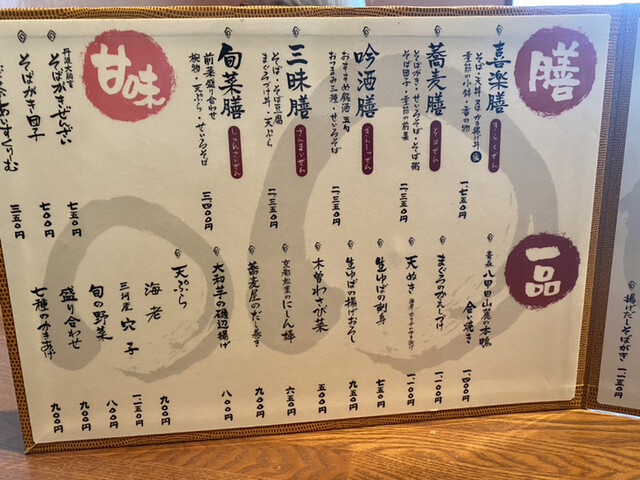 膳
喜楽膳
きらくぜん
一、七五〇円
蕎麦膳
そばぜん
二、三五〇円
吟酒膳
ぎんしゅぜん
おすすめ銘酒 五勺
おつまみ三種・せいろそば
二、三五〇円
三昧膳
さんまいぜん
そば・そば豆腐
まぐろづけ丼・天ぷら
二、三五〇円
旬菜膳
しゅんさいぜん
前菜盛り合わせ
椀物・天ぷら・せいろそば
三、四〇〇円
甘味
丹波大納言
そばがきぜんざい
七五〇円
そばがき団子
七〇〇円
あいすくりーむ
三五〇円
一品
青森 八甲田山麓の本鴨
合い焼き
一、四〇〇円
まぐろのかえしづけ
一、一〇〇円
天ぬき
一、一〇〇円
生ゆばの刺身
七五〇円
生ゆばの揚げおろし
九五〇円
木曽わさび菜
五〇〇円
京都松葉のにしん棒
六五〇円
蕎麦屋のだし巻き
九〇〇円
大和芋の磯辺揚げ
八〇〇円
天ぷら
海老
九〇〇円
三河屋 穴子
一、二五〇円
旬の野菜
八〇〇円
盛り合わせ
九〇〇円
七種のかきあげ
九〇〇円
揚げだしそばがき
一、一五〇円